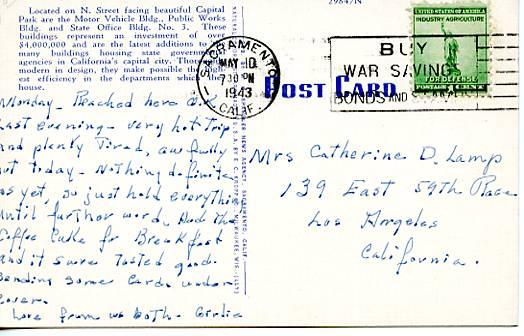 Located on N. Street facing beautiful Capital
Park are the Motor Vehicle Bldg., Public Works
Bldg. and State Office Bldg. No. 3. These
buildings represent an investment of over
$4,000,000 and are the latest additions to
many buildings housing state government
agencies in California's capital city.
modern in design, they make possible the
est efficiency in departments which
house.
29847N
SACRAMENTO
MAY 10
7 30 PM
1943
CALIF.
BUY
WAR SAVINGS
BONDS AND
UNITED STATES OF AMERICA
INDUSTRY AGRICULTURE
FOR DEFENSE
POSTAGE 1 CENT
POST CARD
Monday - Reached here
last evening - very hot trip
and plenty tired, awfully
hot today - Nothing definite
as yet, so just hold everything
until further word, Had the
Coffee Cake for Breakfast
and it sure tasted good.
Sending some cards under
cover.
Love from us both - Girlie
Mrs Catherine D. Lamp
139 East 59th Place
Los Angeles
California.